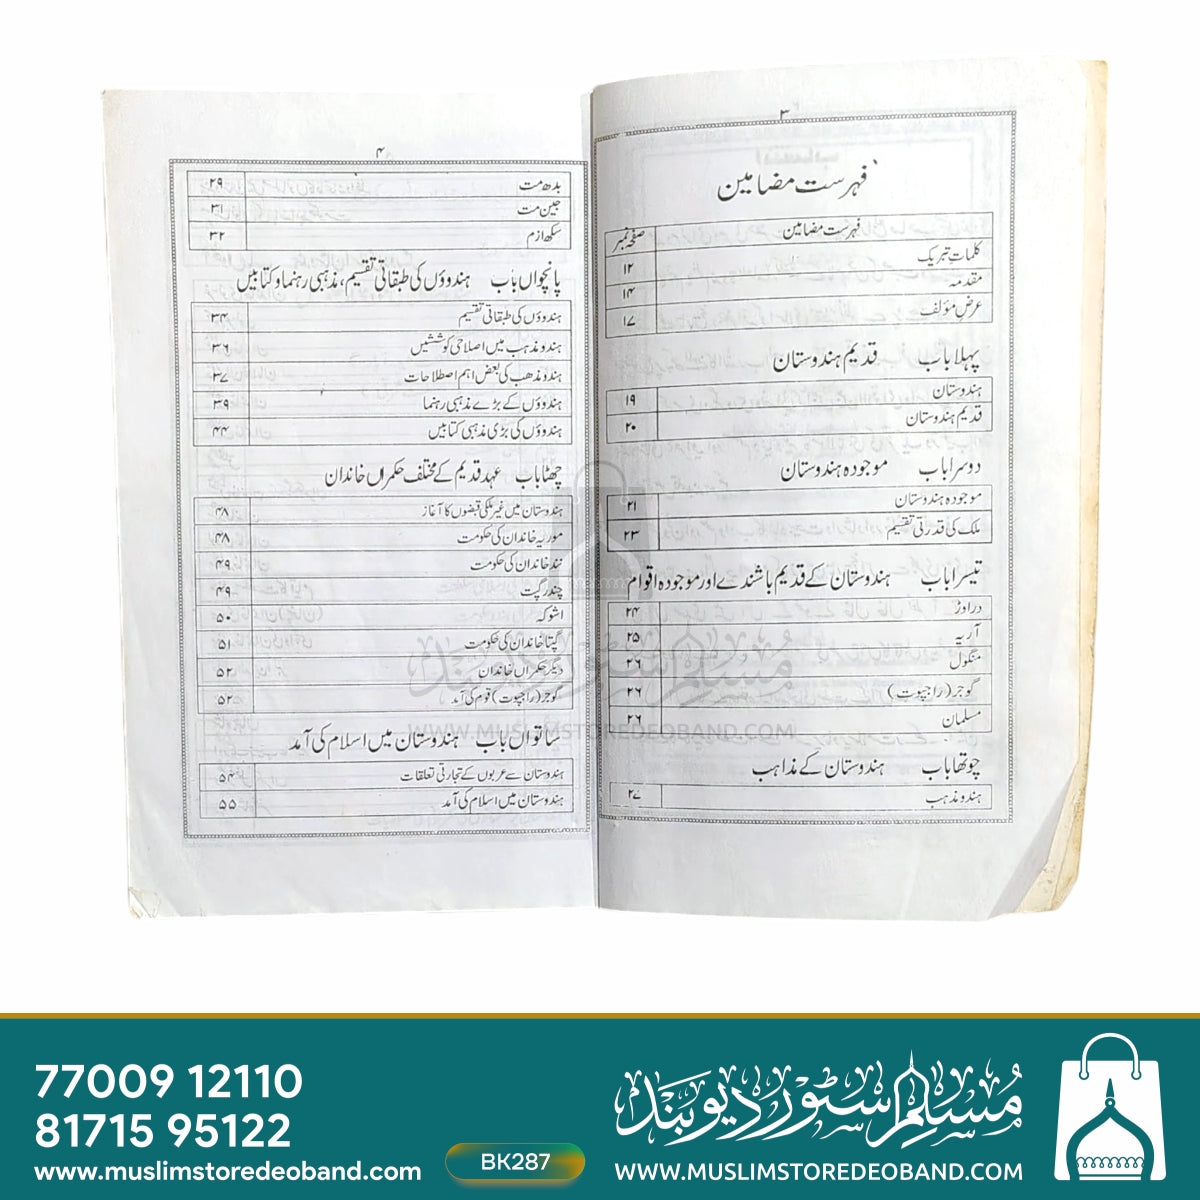 ۳
فہرست مضامین
فہرست مضامین صفحہ نمبر
کلمات تبریک ۱۲
مقدمہ ۱۴
عرض مؤلف ۱۷
پہلا باب قدیم ہندوستان
ہندوستان ۱۹
قدیم ہندوستان ۲۰
دوسرا باب موجودہ ہندوستان
موجودہ ہندوستان ۲۱
ملک کی قدرتی تقسیم ۲۳
تیسرا باب ہندوستان کے قدیم باشندے اور موجودہ اقوام
دراوڑ ۲۴
آریہ ۲۵
منگول ۲۶
گوجر (راجپوت) ۲۶
مسلمان ۲۶
چوتھا باب ہندوستان کے مذاہب
ہندو مذہب ۲۷
۴
بدھ مت ۲۹
جین مت ۳۱
سکھ ازم ۳۲
پانچواں باب ہندوؤں کی طبقاتی تقسیم، مذہبی رہنما و کتابیں
ہندوؤں کی طبقاتی تقسیم ۳۴
ہندو مذہب میں اصلاحی کوششیں ۳۶
ہندو مذھب کی بعض اہم اصطلاحات ۳۷
ہندوؤں کے بڑے مذہبی رہنما ۳۹
ہندوؤں کی بڑی مذہبی کتابیں ۴۴
چھٹا باب عہد قدیم کے مختلف حکمراں خاندان
ہندوستان میں غیر ملکی قبضوں کا آغاز ۴۸
موریہ خاندان کی حکومت ۴۸
نند خاندان کی حکومت ۴۹
چندر گپت ۴۹
اشوکہ ۵۰
گپتا خاندان کی حکومت ۵۱
دیگر حکمراں خاندان ۵۲
گوجر (راجپوت) قوم کی آمد ۵۲
ساتواں باب ہندوستان میں اسلام کی آمد
ہندوستان سے عربوں کے تجارتی تعلقات ۵۴
ہندوستان میں اسلام کی آمد ۵۵
مسلم سٹور دیوبند
WWW.MUSLIMSTOREDEOBAND.COM
77009 12110
81715 95122
www.muslimstoredeoband.com
BK287
مسلم سٹور دیوبند
WWW.MUSLIMSTOREDEOBAND.COM